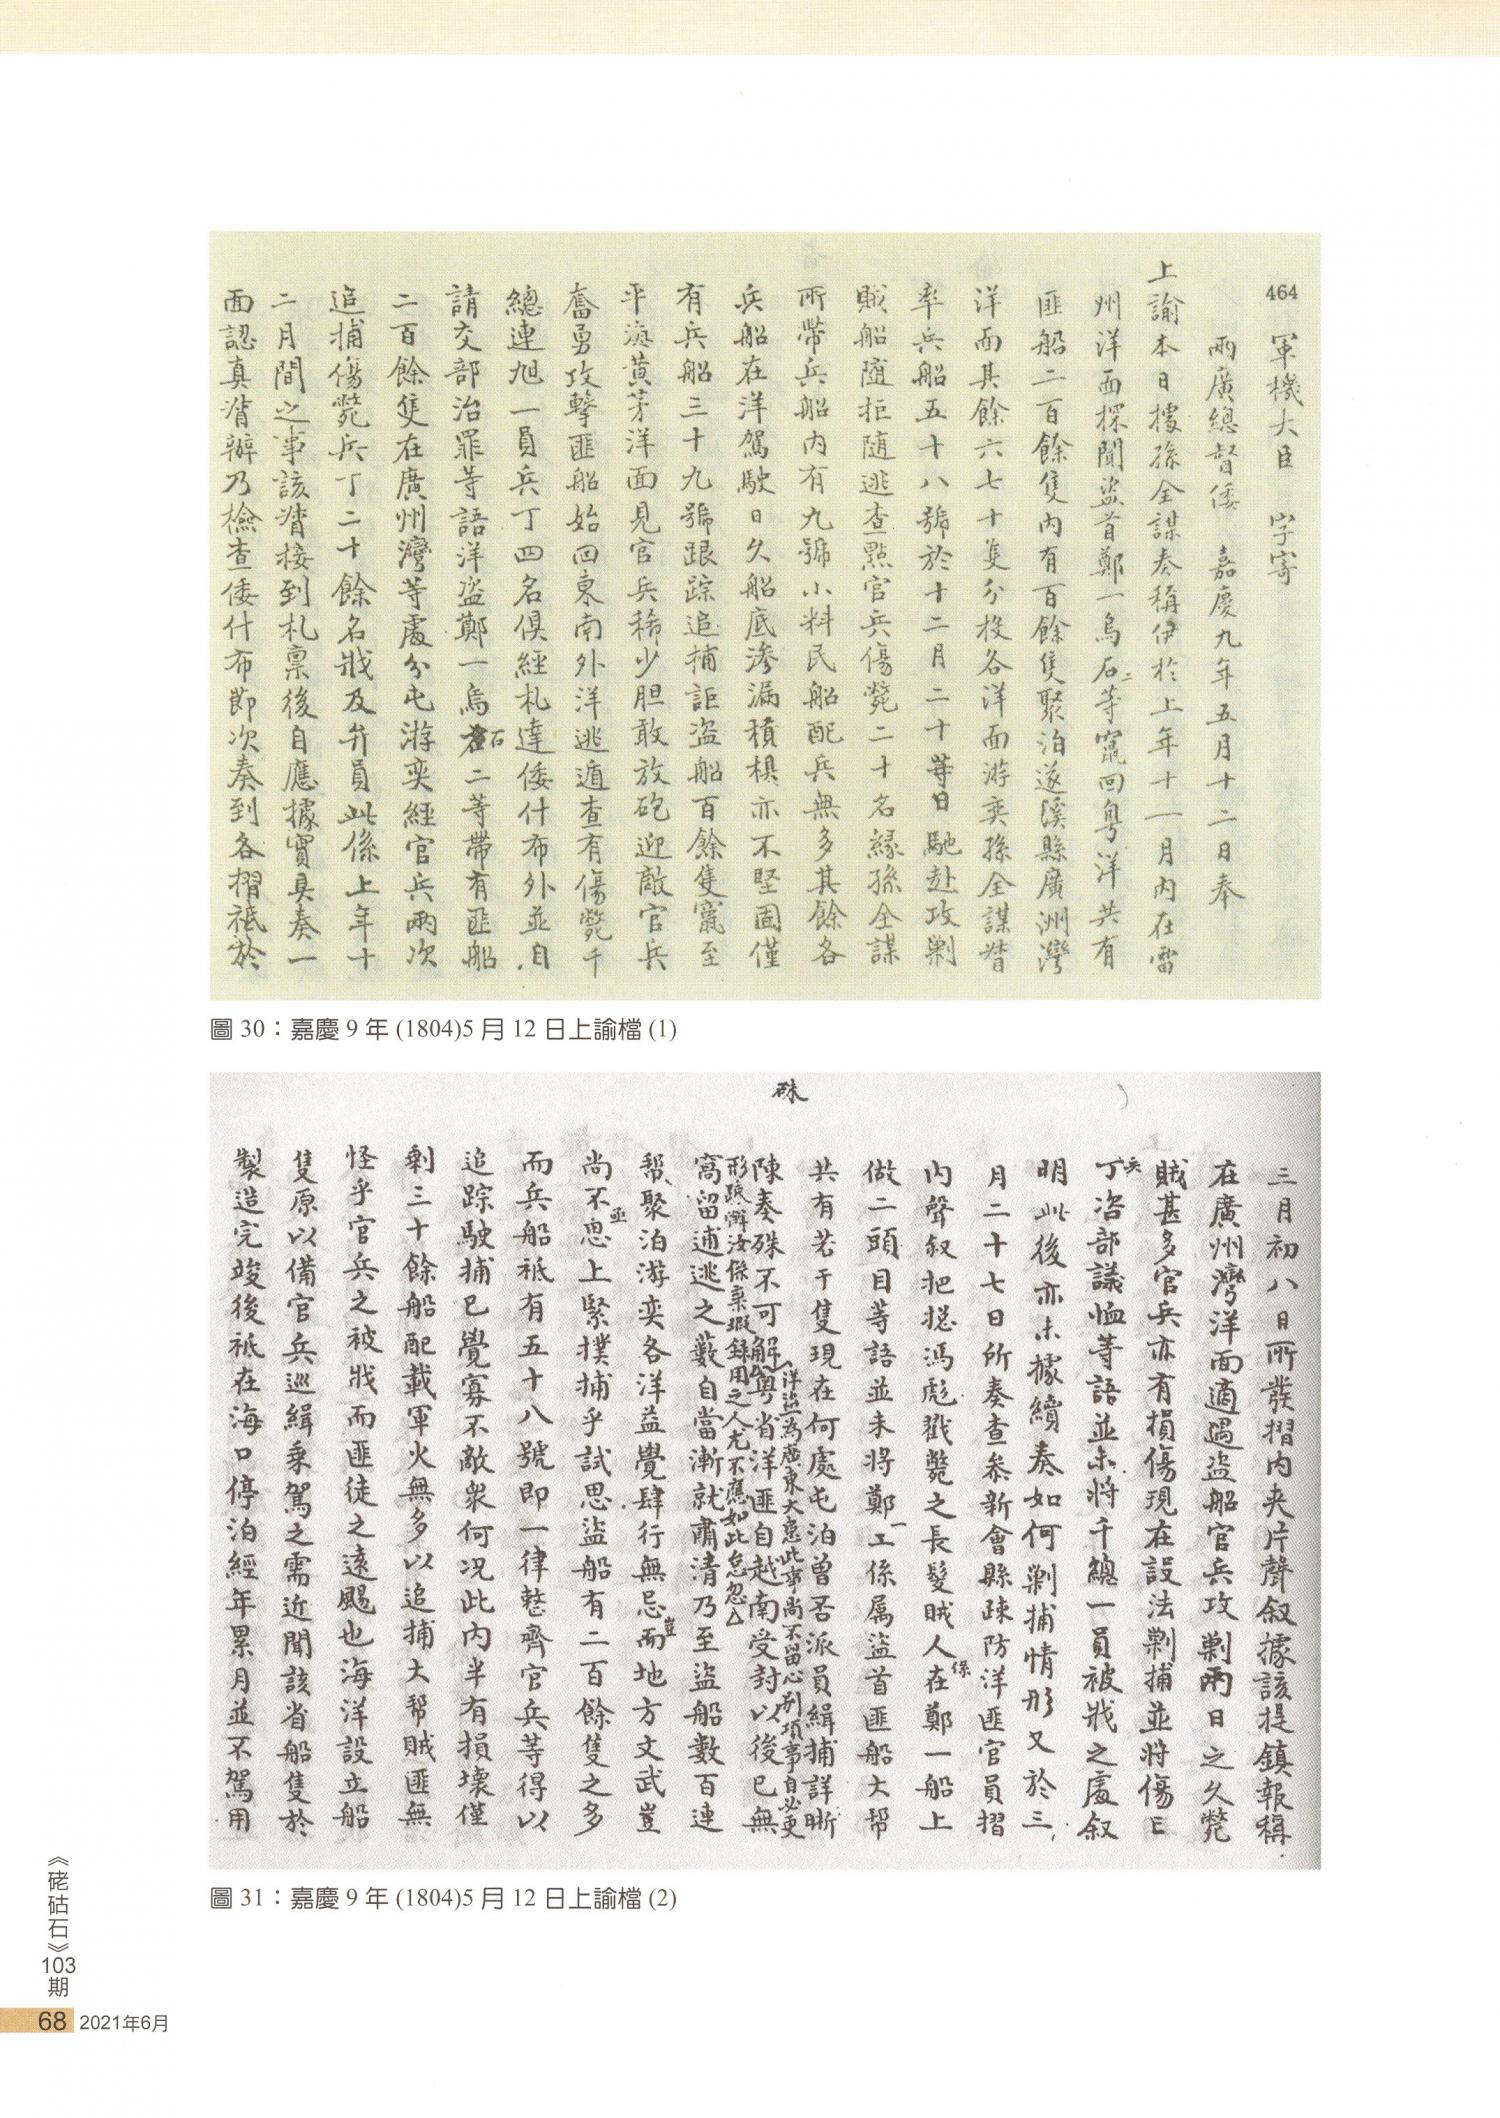 464
軍機大臣　字寄
兩廣總督倭　嘉慶九年五月十二日奉
上諭本日據孫全謀奏稱伊於上年十一月內在雷
州洋面探聞盜首鄭一烏石二等竄回粵洋共有
匪船二百餘隻內有百餘隻聚泊遂溪縣廣洲灣
洋面其餘六七十隻分投各洋面游奕孫全謀督
率兵船五十八號於十二月二十等日馳赴攻剿
賊船隨拒隨逃查點官兵傷斃二十名緣孫全謀
所帶兵船內有九號小料民船配兵無多其餘各
兵船在洋駕駛日久船底滲漏積棋亦不堅固僅
有兵船三十九號跟踪追捕詎盜船百餘隻竄至
平海黃茅洋面見官兵稀少胆敢放砲迎敵官兵
奮勇攻擊匪船始回東南外洋逃遁查有傷斃千
總連旭一員兵丁四名俱經札達倭什布外並自
請交部治罪等語洋盜鄭一烏石二等帶有匪船
二百餘隻在廣州灣等處分屯游奕經官兵兩次
追捕傷斃兵丁二十餘名戕及弁員此係上年十
二月間之事該督接到札稟後自應據實具奏一
面認真督辦乃檢查倭什布節次奏到各摺祗於
圖 30：嘉慶 9 年 (1804)5 月 12 日上諭檔 (1)
硃
三月初八日所發摺內夾片聲叙據該提鎮報稱
在廣州灣洋面適遇盜船官兵攻剿兩日之久斃
賊甚多官兵亦有損傷現在設法剿捕並將傷亡
兵丁咨部議恤等語並未將千總一員被戕之處叙
明此後亦未據續奏如何剿捕情形又於三
月二十七日所奏查參新會縣疎防洋匪官員摺
內聲叙把總馮彪戳斃之長髮賊人係在鄭一船上
做二頭目等語並未將鄭一工係屬盜首匪船大幫
共有若干隻現在何處屯泊曾否派員緝捕詳晰
陳奏殊不可解洋盜為廣東大患此事尚不留心別項事自必更
形疎懈汝係棄瑕錄用之人尤不應如此怠忽粵省洋匪自越南受封以後已無
窩留逋逃之藪自當漸就肅清乃至盜船數百連
幫聚泊游奕各洋益覺肆行無忌豈而地方文武豈
尚不並思上緊撲捕乎試思盜船有二百餘隻之多
而兵船祗有五十八號即一律整齊官兵等得以
追踪駛捕已覺寡不敵衆何况此內半有損壞僅
剩三十餘船配載軍火無多以追捕大幫賊匪無
怪乎官兵之被戕而匪徒之遠颺也海洋設立船
隻原以備官兵巡緝乘駕之需近聞該省船隻於
製造完竣後祗在海口停泊經年累月並不駕用
圖 31：嘉慶 9 年 (1804)5 月 12 日上諭檔 (2)
《硓𥑮石》103期
68 2021年6月